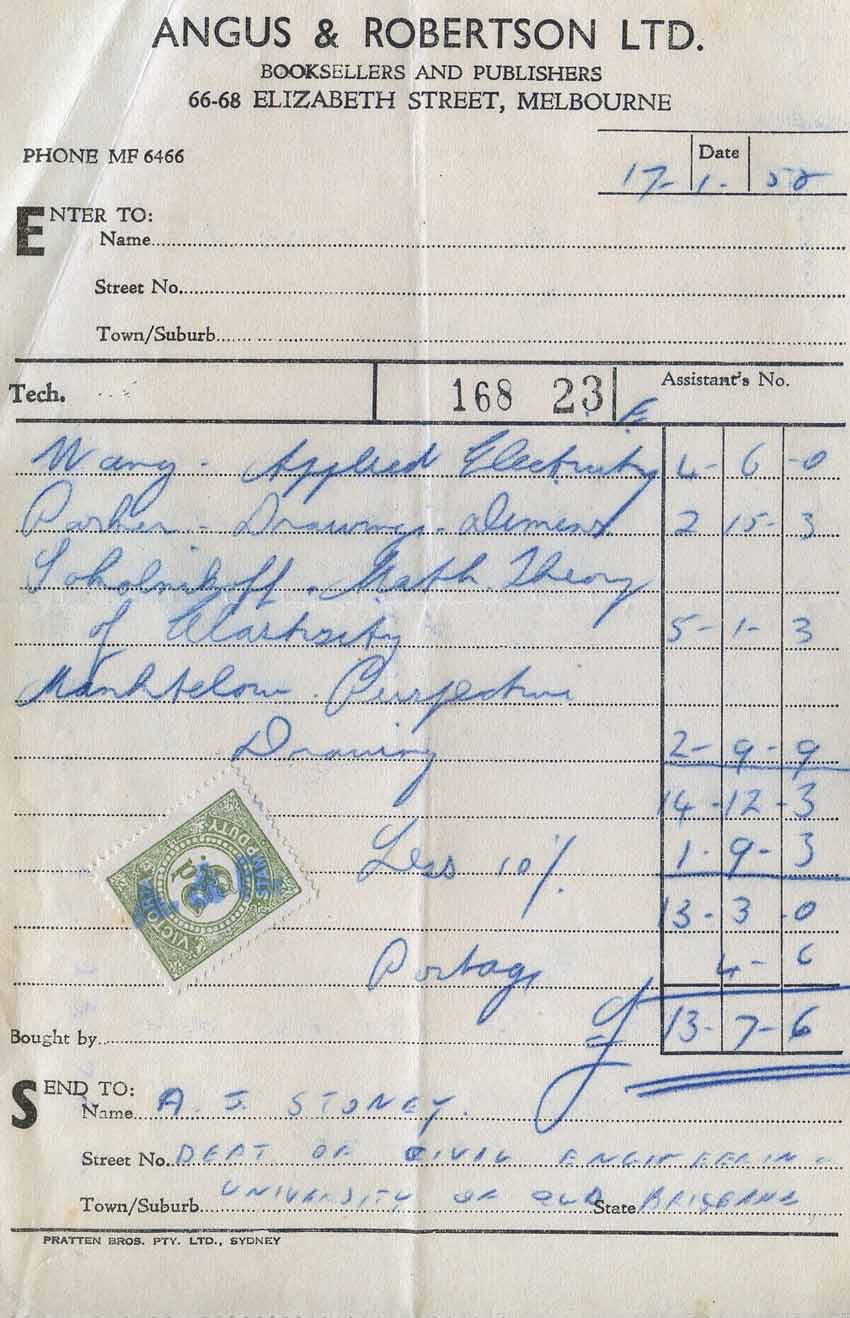 ANGUS & ROBERTSON LTD.
BOOKSELLERS AND PUBLISHERS
66-68 ELIZABETH STREET, MELBOURNE
PHONE MF 6466
Date
17-1-58
ENTER TO:
Name
Street No.
Town/Suburb
Tech. 168 23 Assistant's No.
Wang - Applied Electricity 4-6-0
Parker - Drawings - Dimens 2 15-3
Sokolnikoff. Math. Theory
of Elasticity 5-1-3
Perspective
Drawing 2-9-9
14-12-3
Less 10% 1-9-3
13-3-0
Postage 4-6
£ 13-7-6
VICTORIA
STAMP DUTY
Bought by
SEND TO:
Name A. J. STONEY.
Street No. DEPT OF CIVIL ENGINEERIN
Town/Suburb UNIVERSITY OF QLD State BRISBANE
PRATTEN BROS. PTY. LTD., SYDNEY